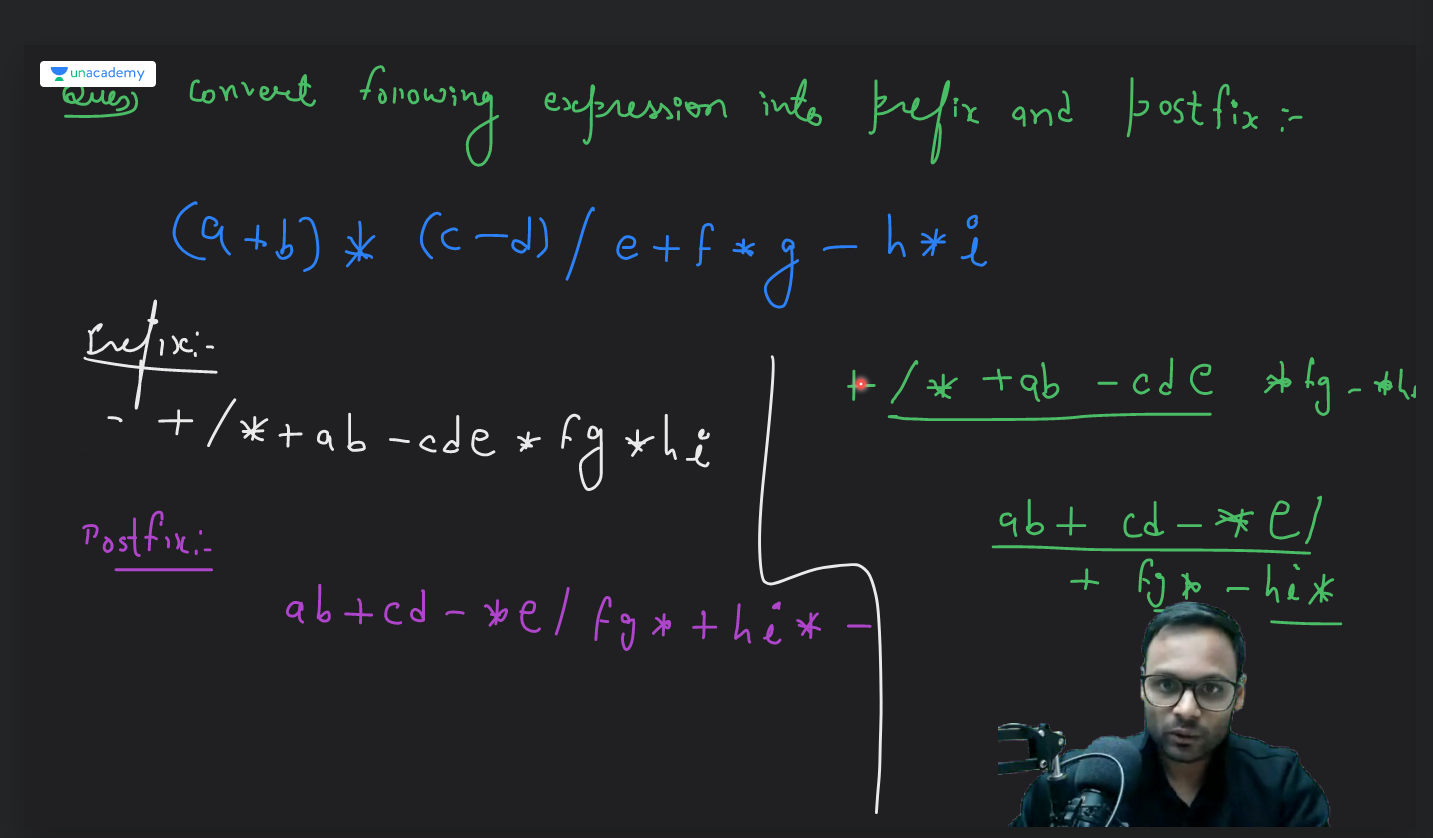 unacademy
Ques) convert following expression into prefix and postfix :-
(a+b) * (c-d) / e + f * g - h * i
Prefix:-
- + / * + a b - c d e * f g * h i
Postfix:-
a b + c d - * e / f g * + h i * -
+ / * + a b - c d e * f g - * h
a b + c d - * e /
+ f g * - h i *